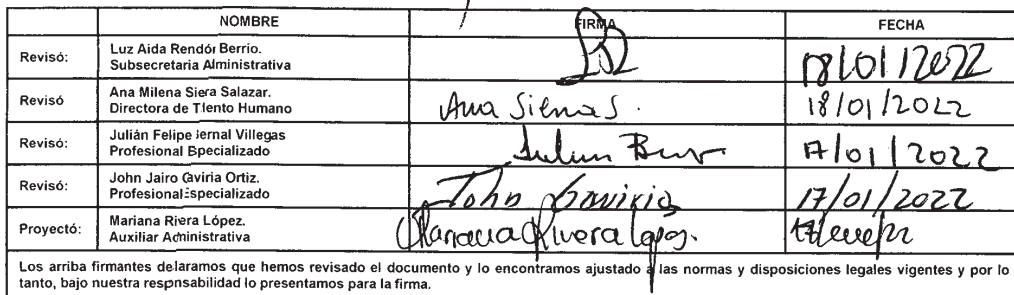 NOMBRE FIRMA FECHA
Revisó: Luz Aida Rendór Berrio.
Subsecretaria Aministrativa 18/01/2022
Revisó Ana Milena Siera Salazar.
Directora de Tlento Humano Ana Sierra S. 18/01/2022
Revisó: Julián Felipe Jernal Villegas
Profesional Especializado 17/01/2022
Revisó: John Jairo Gviria Ortiz.
Profesional Especializado John Gaviria 17/01/2022
Proyectó: Mariana Riera López.
Auxiliar Administrativa Mariana Rivera López.
Los arriba firmantes delaramos que hemos revisado el documento y lo encontramos ajustado a las normas y disposiciones legales vigentes y por lo
tanto, bajo nuestra respnsabilidad lo presentamos para la firma.